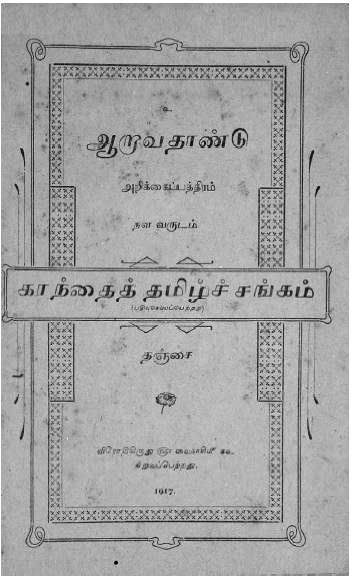 உ
ஆறுவதாண்டு
அறிக்கைப்பத்திரம்
நள வருடம்
காந்தைத் தமிழ்ச் சங்கம்
(பதிவுசெய்யப்பெற்றது)
தஞ்சை
நிறுவப்பெற்றது.
1917.